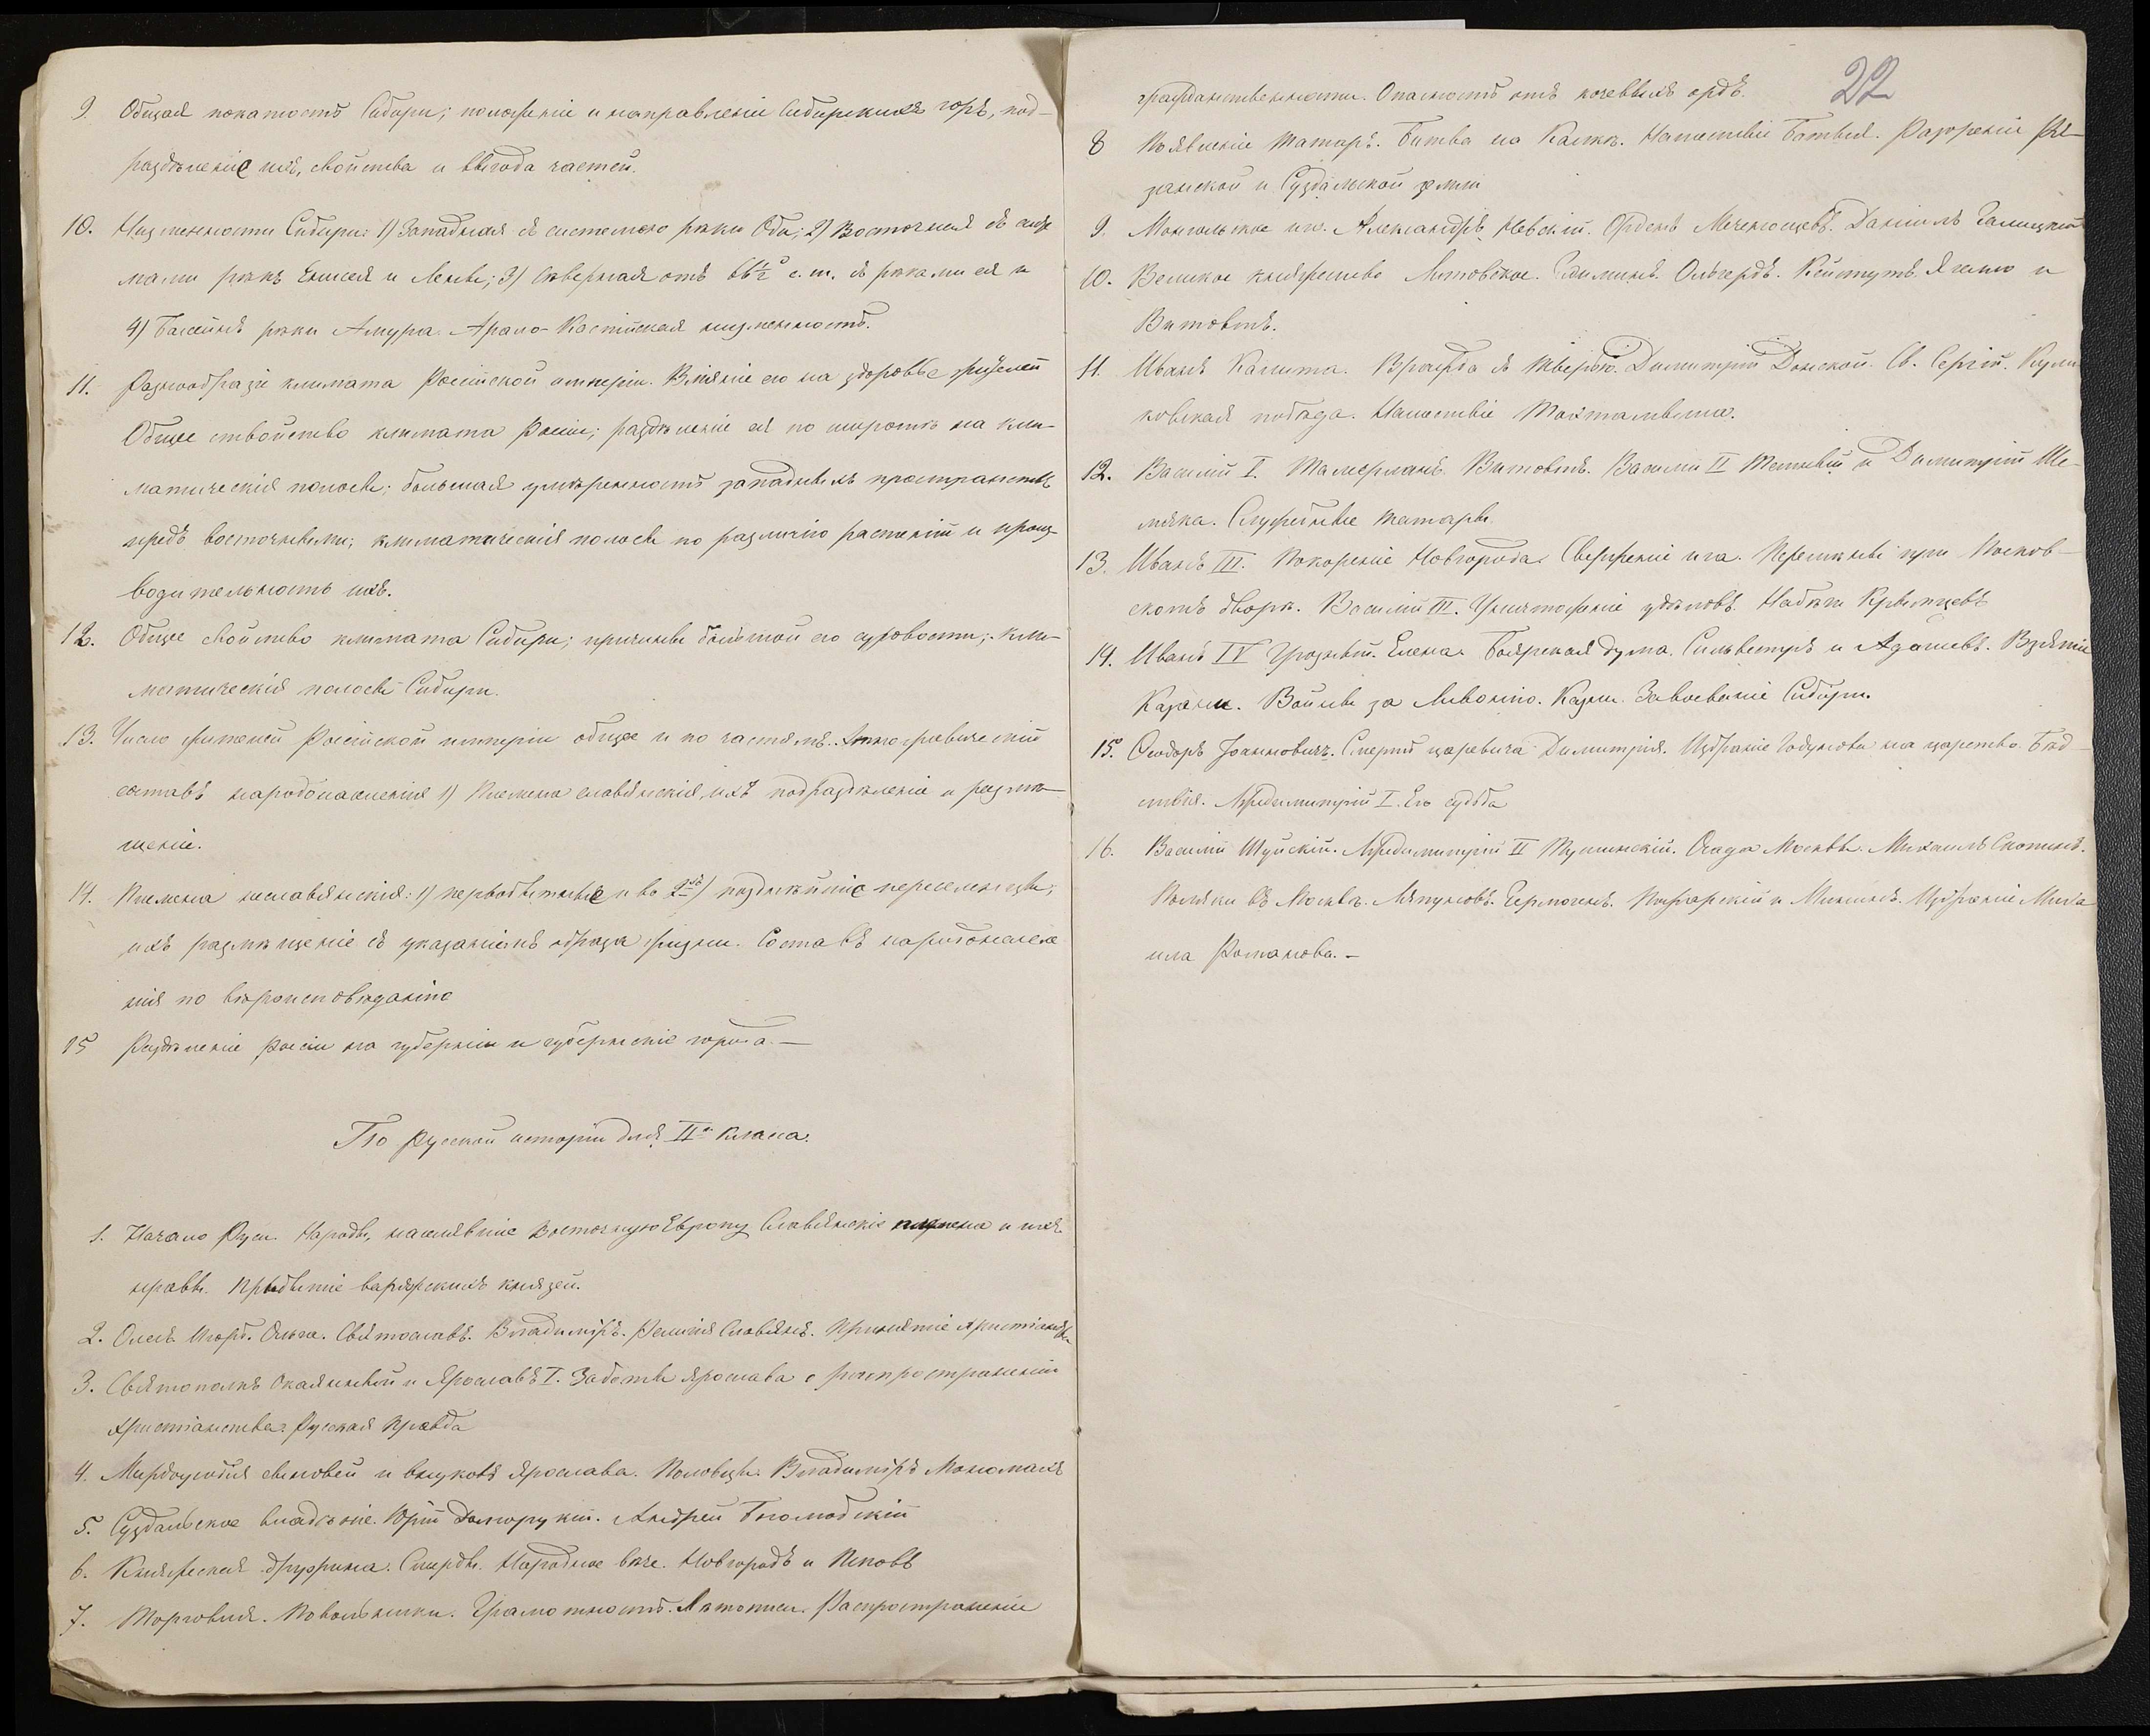 9. Общая покатость Сибири; положеніе и направленіе Сибирскихъ горъ, под-
раздѣленіе ихъ, свойства и выгода частей.
10. Низменности Сибири: 1) Западная съ системою рѣки Оби; 2) Восточная съ систе
мами рѣкъ Енисея и Лены; 3) Сѣверная отъ 66½° с. ш. съ рѣками ея и
4) Бассейнъ рѣки Амура. Арало-Каспійская низменность.
11. Разнообразіе климата Россійской имперіи. Вліяніе его на здоровье жителей
Общее свойство климата Россіи; раздѣленіе ея по широтѣ на кли-
матическія полосы; большая умѣренность западныхъ пространствъ
предъ восточными; климатическія полосы по различію растеній и произ-
водительность ихъ.
12. Общее свойство климата Сибири; причины большой его суровости; кли-
матическія полосы Сибири.
13. Число жителей Россійской имперіи общее и по частямъ. Этнографическій
составъ народонаселенія 1) Племена славянскія, ихъ подраздѣленіе и размѣ-
щеніе.
14. Племена неславянскія: 1) первобытные и во 2хъ) позднѣйшіе переселенцы;
ихъ размѣщеніе съ указаніемъ образа жизни. Составъ народонаселе
нія по вѣроисповѣданію
15 Раздѣленіе Россіи на губерніи и губернскіе города. —
По Русской исторіи для II го класса.
1. Начало Руси. Народы, населявшіе Восточную Европу Славянскіе племена и ихъ
нравы. Прибытіе варяжскихъ князей.
2. Олегъ. Игорь. Ольга. Святославъ. Владиміръ. Религія Славянъ. Принятіе Христіанства
3. Святополкъ Окаянный и Ярославъ I. Заботы Ярослава о распространеніи
Христіанства. Русская Правда
4. Междоусобія сыновей и внуковъ Ярослава. Половцы. Владиміръ Мономахъ
5. Суздальское владѣніе. Юрій Долгорукій. Андрей Боголюбскій
6. Княжеская дружина. Смерды. Народное вѣче. Новгородъ и Псковъ
7. Торговля. Повольники. Грамотность. Лѣтописи. Распространеніе
22
гражданственности. Опасность отъ кочевыхъ ордъ.
8 Появленіе татаръ. Битва на Калкѣ. Нашествіе Батыя. Разореніе Ря-
занской и Суздальской земли
9. Монгольское иго. Александръ Невскій. Орденъ Меченосцевъ. Даніилъ Галицкій
10. Великое княжество Литовское. Гедиминъ. Ольгердъ. Кейстутъ. Ягелло и
Витовтъ.
11. Иванъ Калита. Вражда съ Тверью. Димитрій Донской. Св. Сергій. Кули
ковская побѣда. Нашествіе Тохтамыша.
12. Василій I. Тамерланъ. Витовтъ. Василій II Темный и Димитрій Ше-
мяка. Служебные татары.
13. Иванъ III. Покореніе Новгорода. Сверженіе ига. Перемѣны при Москов-
скомъ дворѣ. Василій III. Уничтоженіе удѣловъ. Набѣги Крымцевъ
14. Иванъ IV Грозный. Елена. Боярская дума. Сильвестръ и Адашевъ. Взятіе
Казани. Войны за Ливонію. Казни. Завоеваніе Сибири.
15. Ѳеодоръ Іоанновичъ. Смерть царевича Димитрія. Избраніе Годунова на царство. Бѣд-
ствія. Лжедимитрій I. Его судьба
16. Василій Шуйскій. Лжедимитрій II Тушинскій. Осада Москвы. Михаилъ Скопинъ.
Поляки въ Москвѣ. Ляпуновъ. Гермогенъ. Пожарскій и Мининъ. Избраніе Миха
ила Романова. —